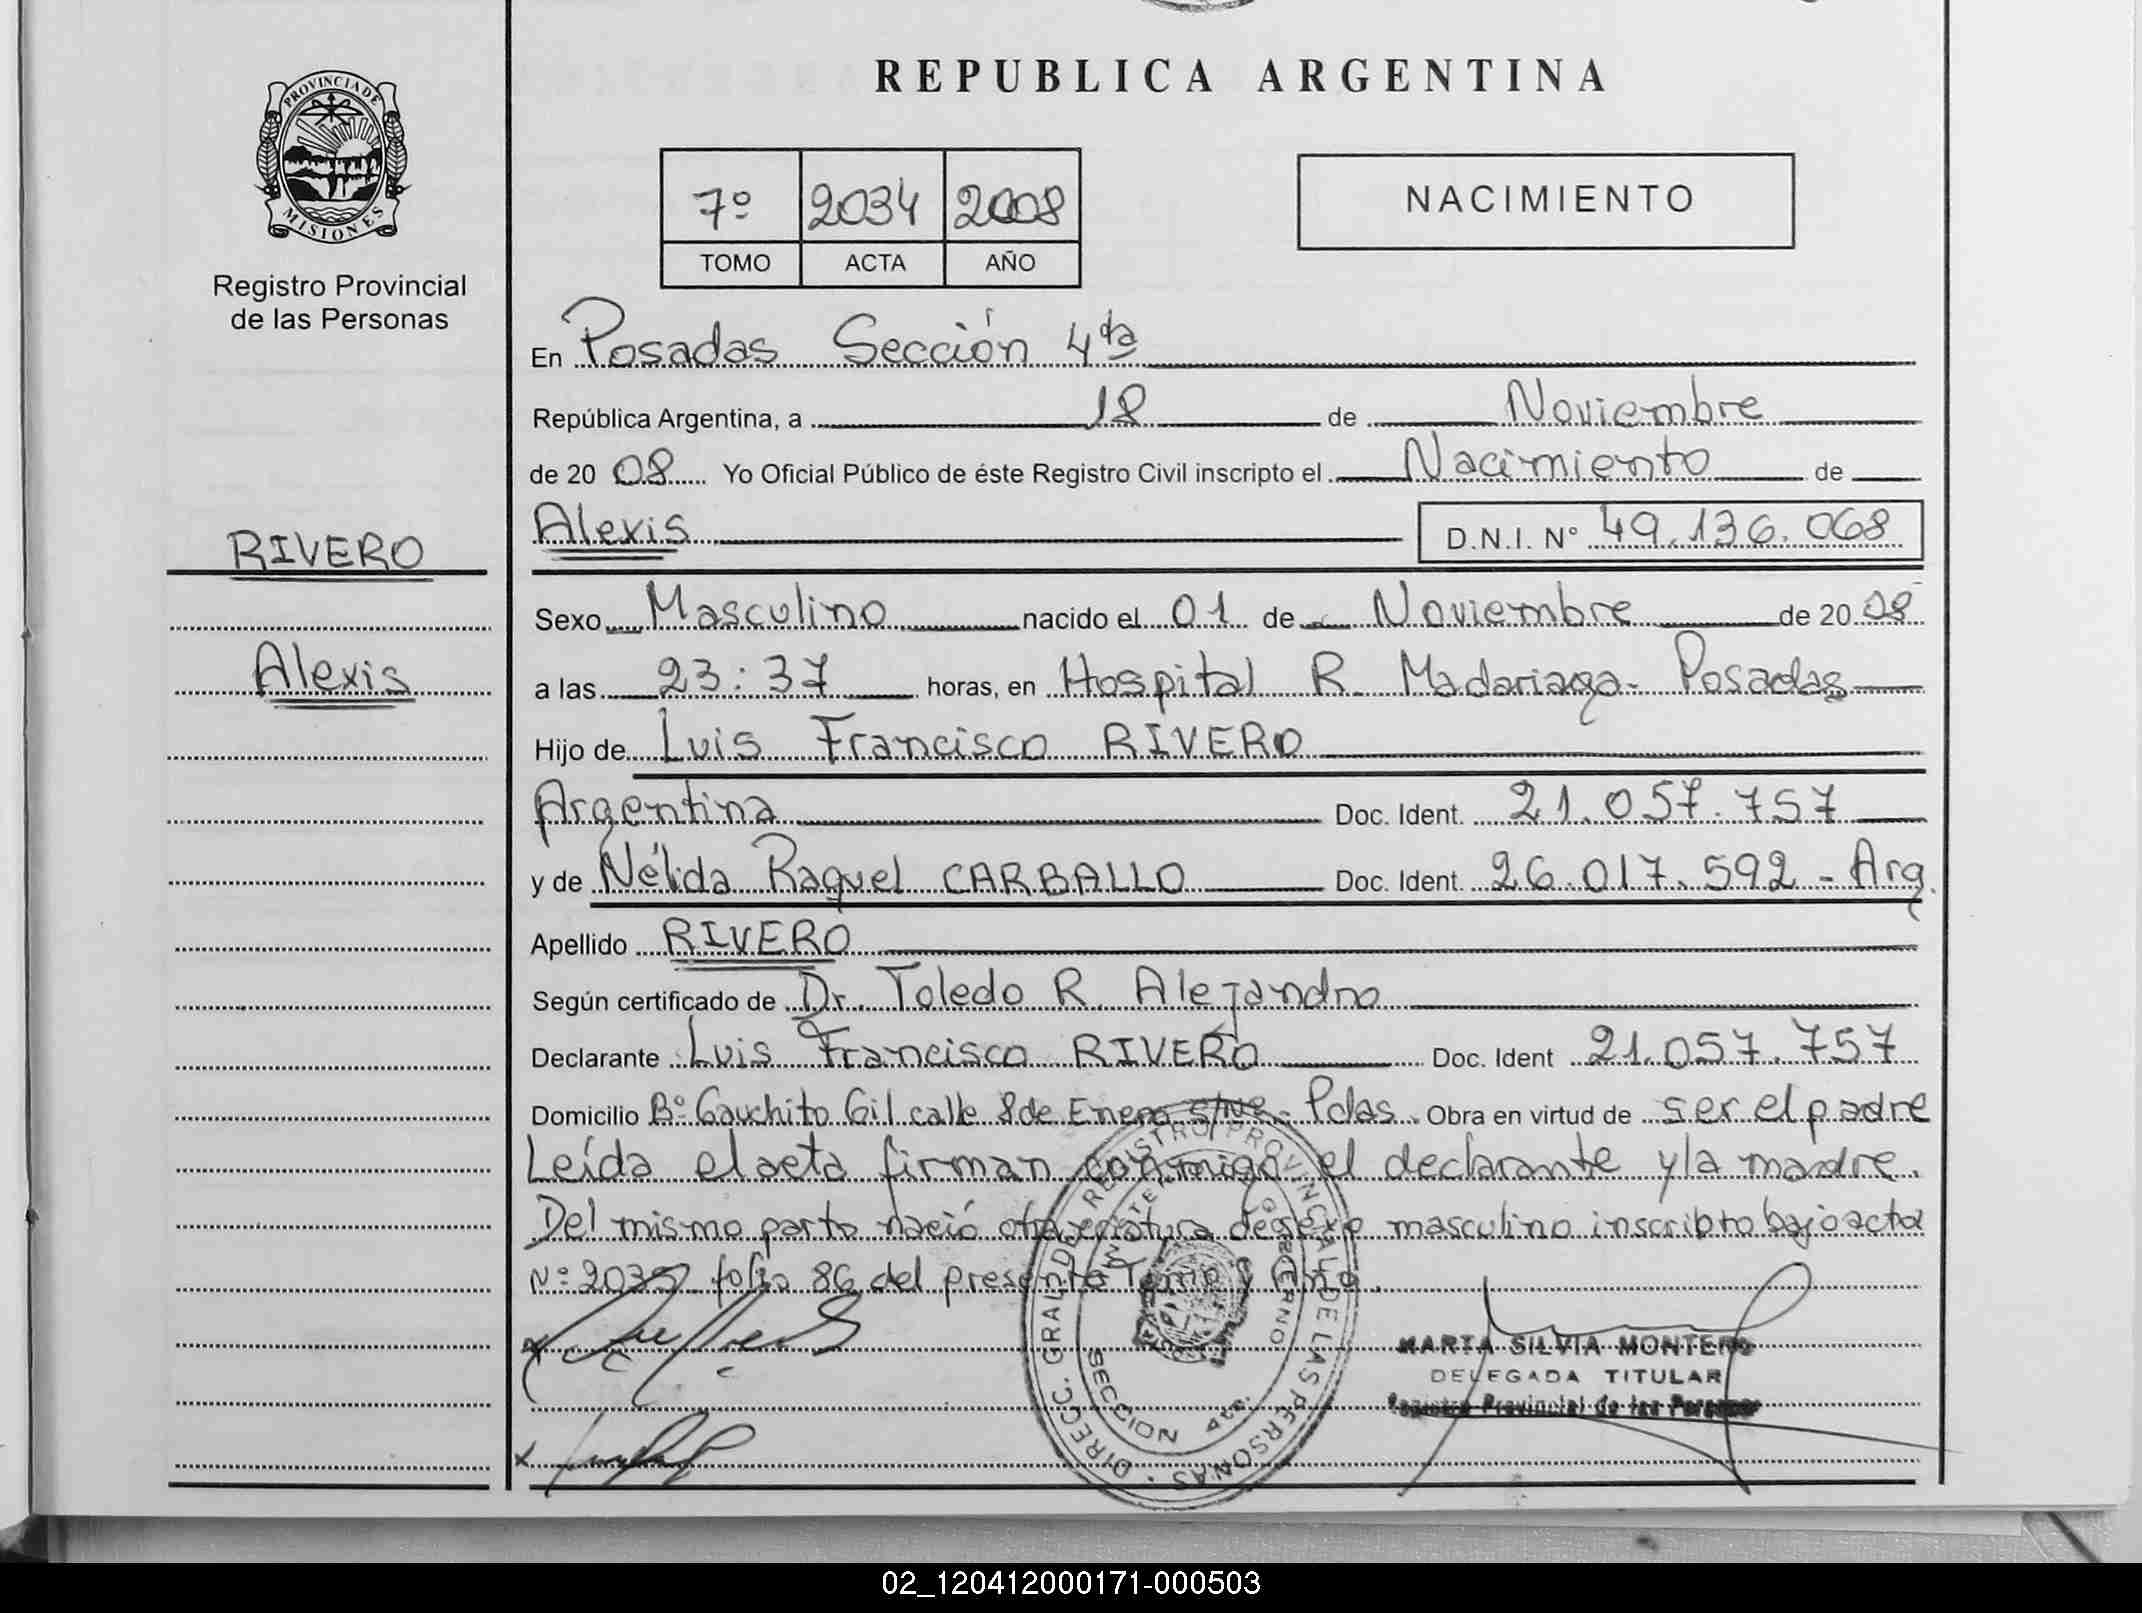 REPUBLICA ARGENTINA
PROVINCIA DE
MISIONES
Registro Provincial
de las Personas
7º 2034 2008
TOMO ACTA AÑO
NACIMIENTO
En Posadas Sección 4ta
República Argentina, a 18 de Noviembre
de 20 08 Yo Oficial Público de éste Registro Civil inscripto el Nacimiento de
RIVERO
Alexis D.N.I. Nº 49.136.068
Sexo Masculino nacido el 01 de Noviembre de 20 08
Alexis
a las 23:37 horas, en Hospital R. Madariaga - Posadas
Hijo de Luis Francisco RIVERO
Argentina Doc. Ident. 21.057.757
y de Nélida Raquel CARBALLO Doc. Ident. 26.017.592 - Arg.
Apellido RIVERO
Según certificado de Dr. Toledo R. Alejandro
Declarante Luis Francisco RIVERO Doc. Ident 21.057.757
Domicilio Bº Gauchito Gil calle 8 de Enero s/Nº - Pdas. Obra en virtud de ser el padre
Leída el acta firman conmigo el declarante y la madre.
Del mismo parto nació otra criatura de sexo masculino inscripto bajo acta
Nº 2035 folio 86 del presente Tomo y Año.
DIRECC. GRAL. DE REGISTRO PROVINCIAL DE LAS PERSONAS
GOBIERNO
SECCION 4ta.
MARTA SILVIA MONTERO
DELEGADA TITULAR
Registro Provincial de las Personas
02_120412000171-000503